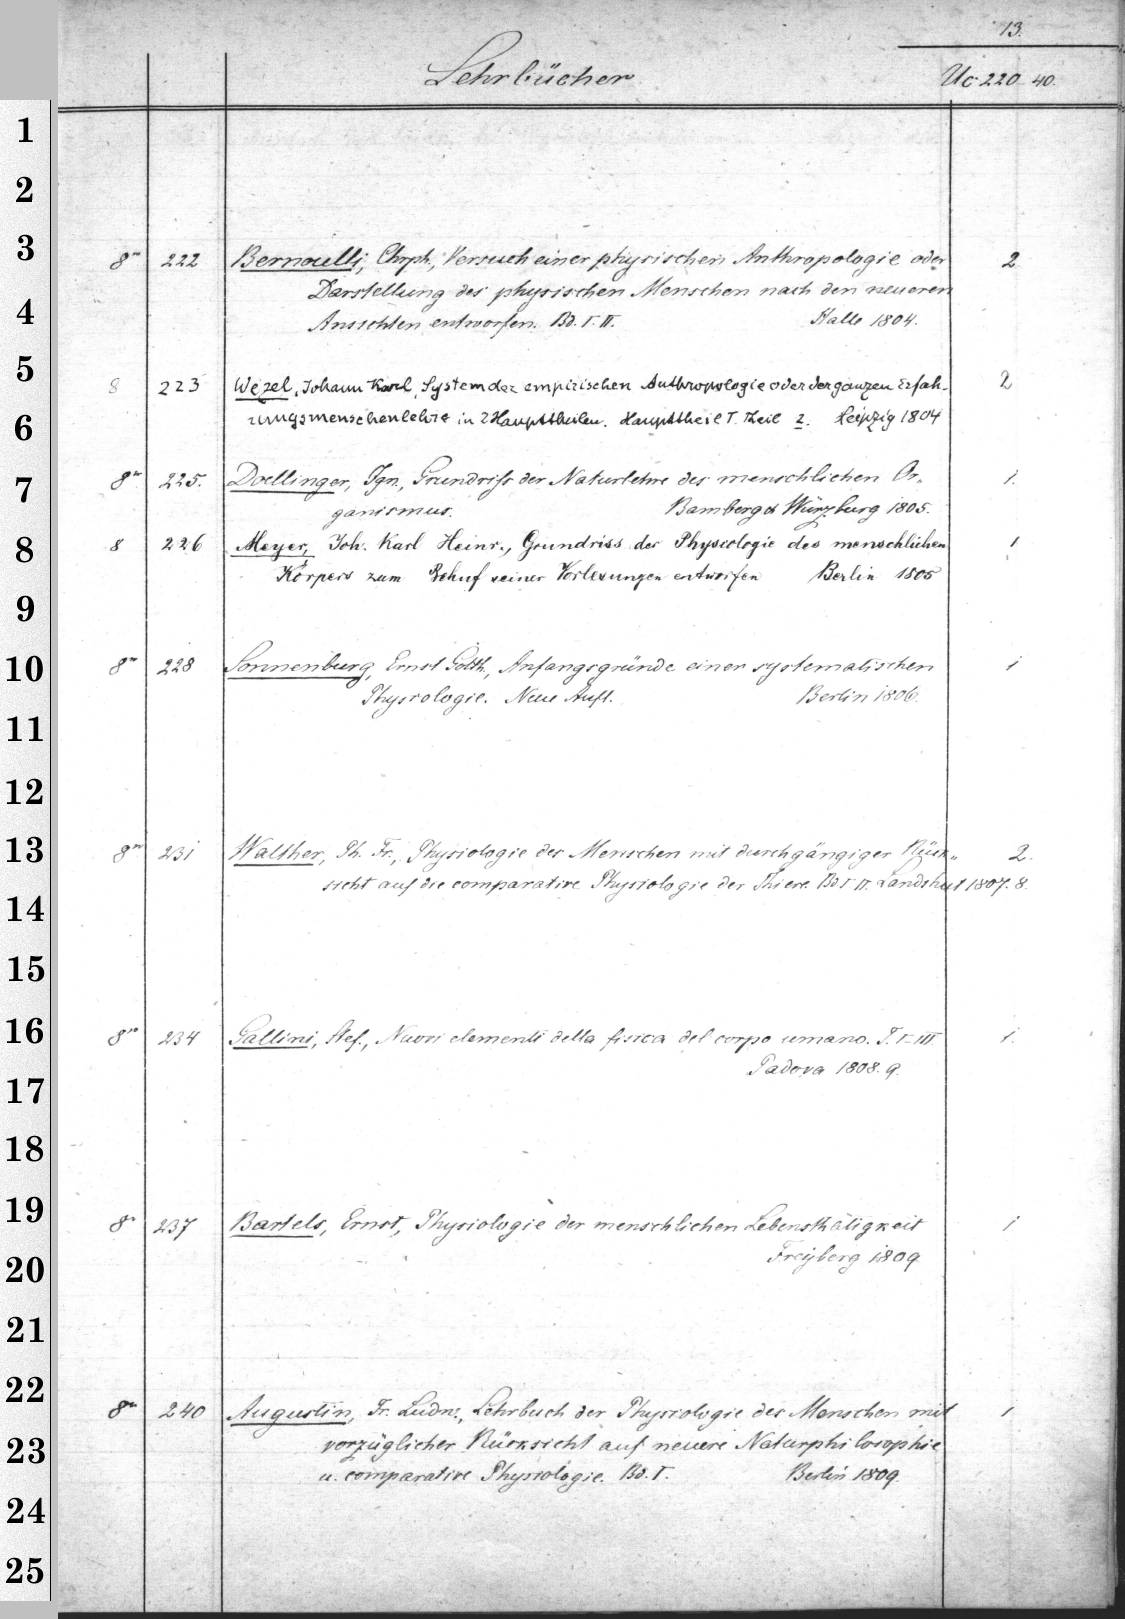 13.
Lehrbücher Uc 220-40.
1
2
3 8° 222 Bernoulli, Chrph., Versuch einer physischen Anthropologie oder 2
Darstellung des physischen Menschen nach den neueren
4 Ansichten entworfen. Bd. I. II. Halle 1804.
5 8 223 Wezel, Johann Karl, System der empirischen Anthropologie oder der ganzen Erfah- 2
6 rungsmenschenlehre in 2 Haupttheilen. Haupttheil I. Theil 2. Leipzig 1804
7 8° 225. Doellinger, Ign., Grundriss der Naturlehre des menschlichen Or- 1.
ganismus. Bamberg & Würzburg 1805.
8 8 226 Meyer, Joh. Karl Heinr., Grundriss der Physiologie des menschlichen 1
Körpers zum Behuf seiner Vorlesungen entworfen Berlin 1805
9
10 8° 228 Sonnenburg, Ernst Gotth., Anfangsgründe einer systematischen 1
Physiologie. Neue Aufl. Berlin 1806.
11
12
13 8° 231 Walther, Ph. Fr., Physiologie des Menschen mit durchgängiger Rück- 2.
sicht auf die comparative Physiologie der Thiere. Bd I. II. Landshut 1807. 8.
14
15
16 8° 234 Gallini, Stef., Nuovi elementi della fisica del corpo umano. T. I-III 1.
Padova 1808. 9.
17
18
19 8° 237 Bartels, Ernst, Physiologie der menschlichen Lebensthätigkeit 1
20 Freyberg 1809
21
22 8° 240 Augustin, Fr. Ludw., Lehrbuch der Physiologie des Menschen mit 1
23 vorzüglicher Rücksicht auf neuere Naturphilosophie
u. comparative Physiologie. Bd. I. Berlin 1809.
24
25